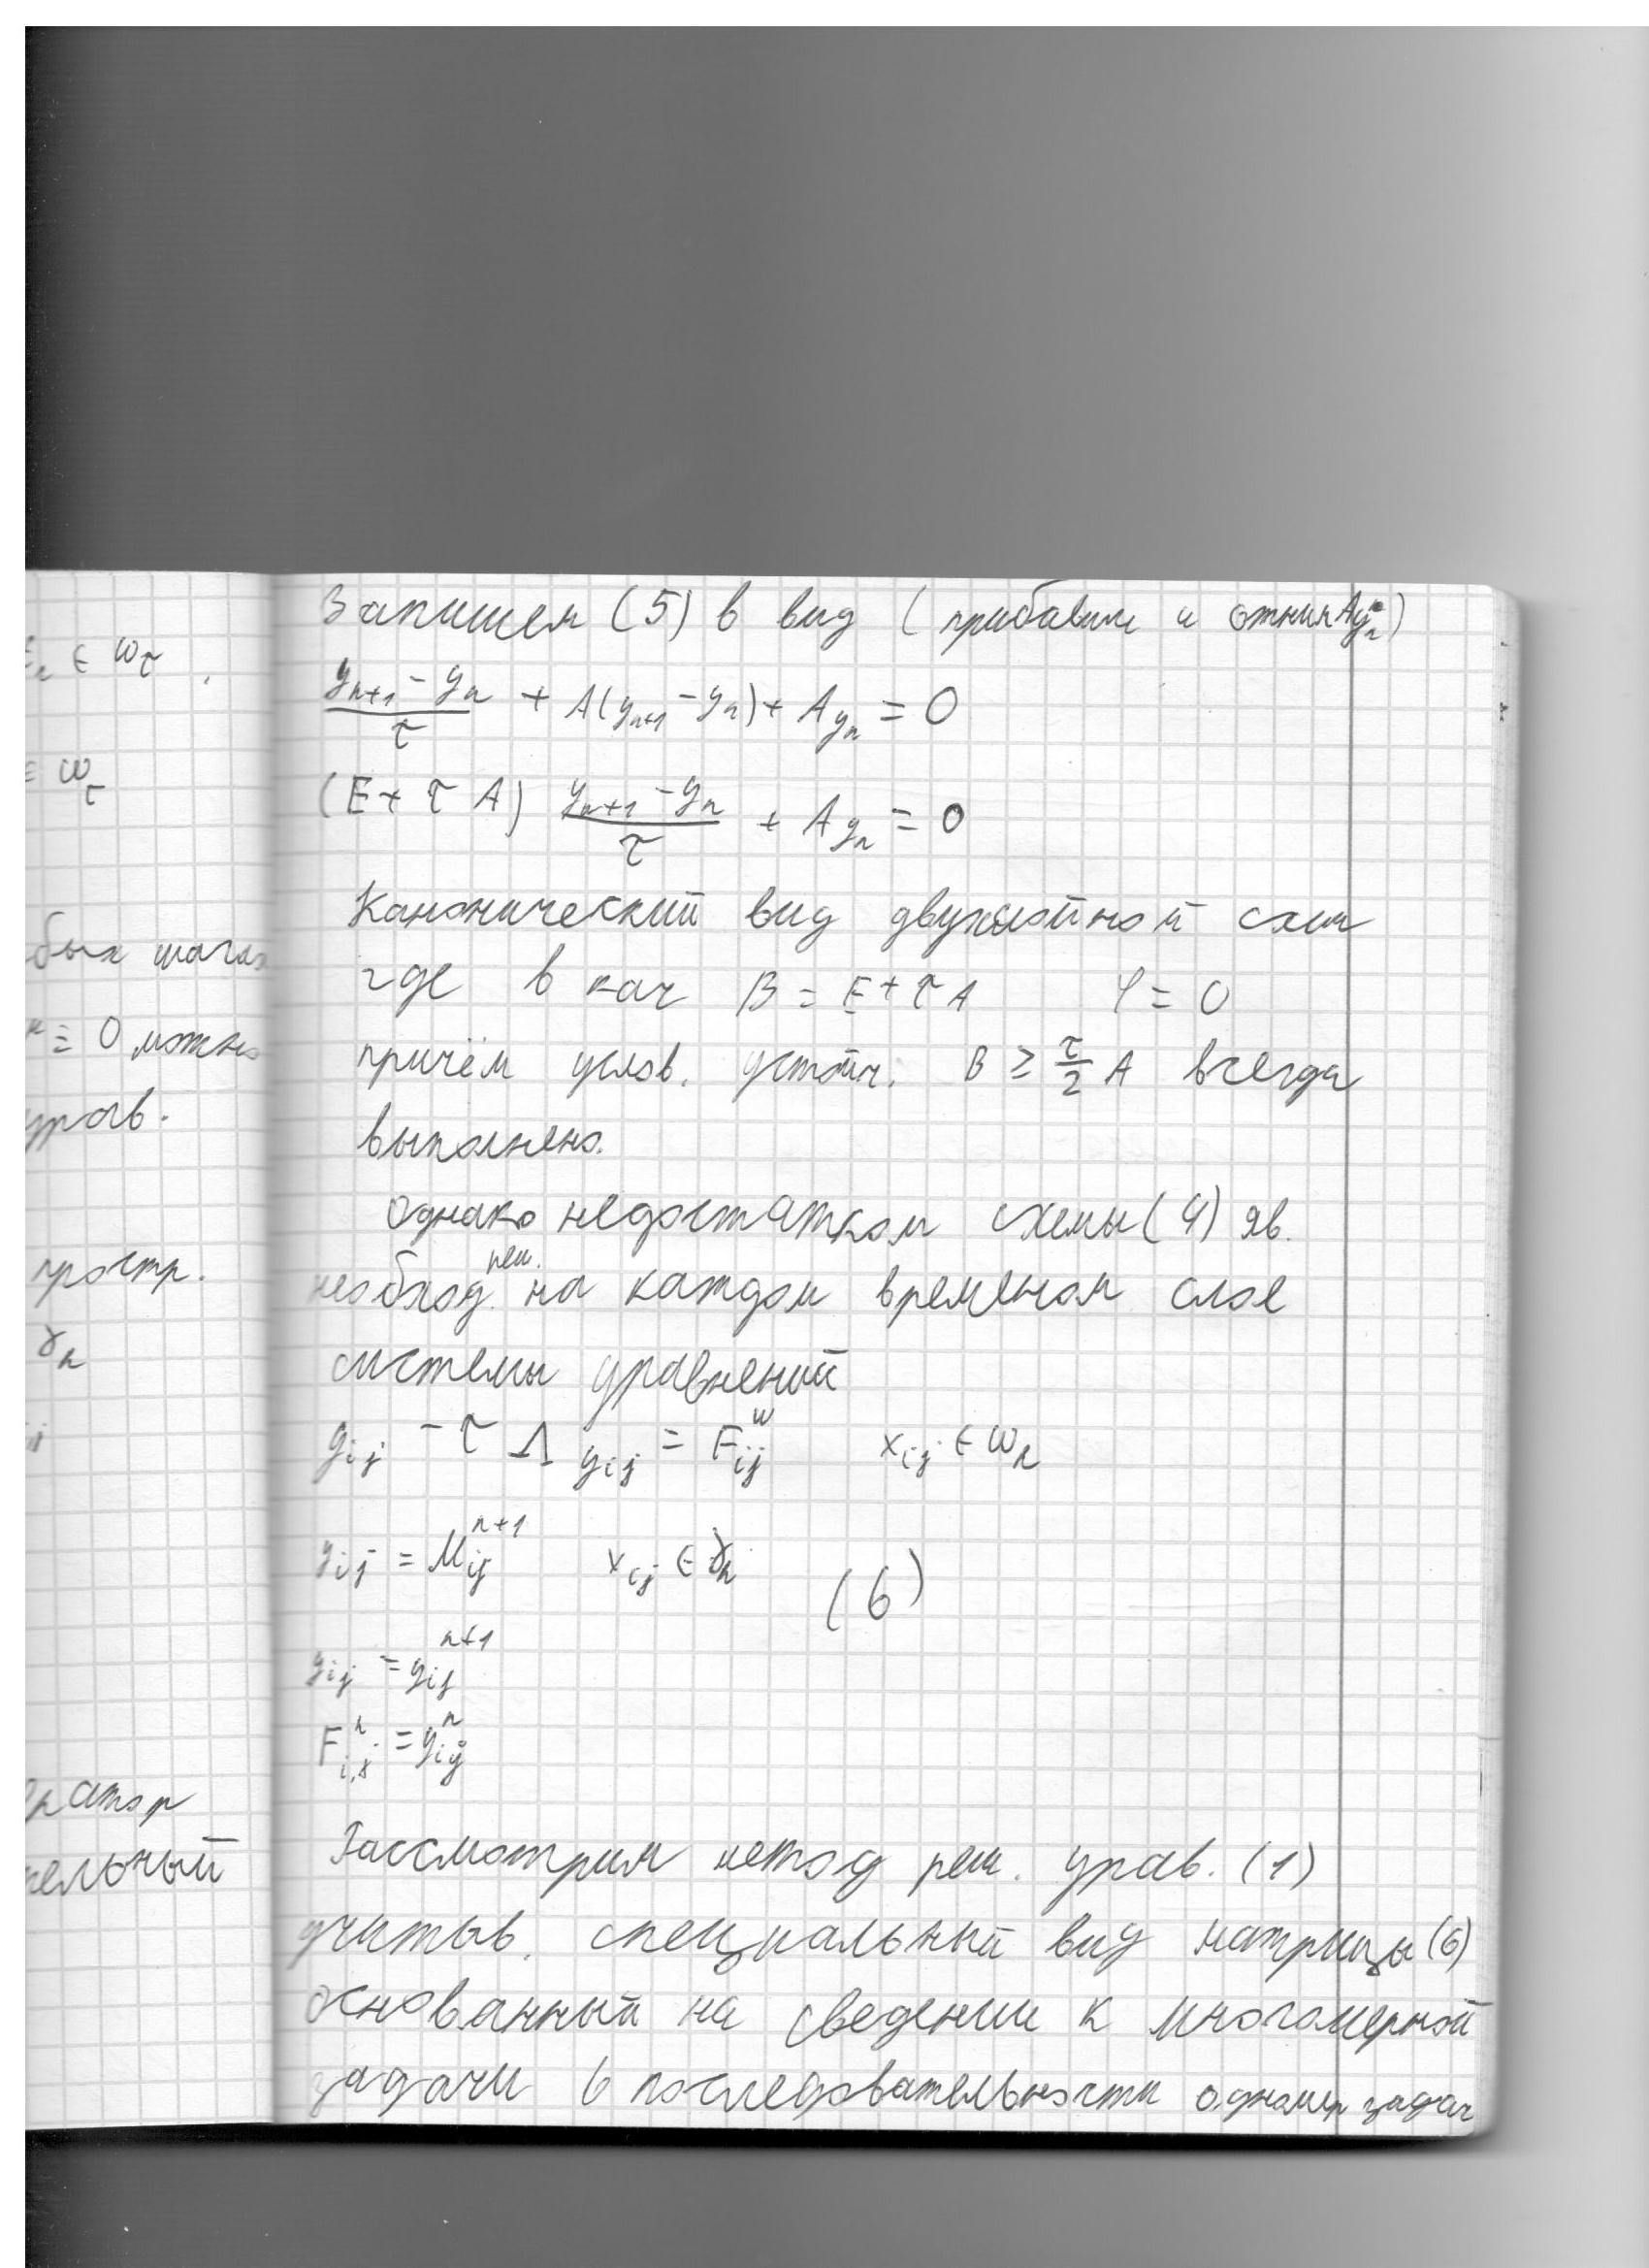 Запишем (5) в вид (прибавим и отним Ay_n)
(y_{n+1} - y_n)/τ + A(y_{n+1} - y_n) + Ay_n = 0
(E + τA) (y_{n+1} - y_n)/τ + Ay_n = 0
Канонический вид двухслойной схем
где в кач B = E + τA φ = 0
причём услов. устойч. B ≥ τ/2 A всегда
выполнено.
однако недостатком схемы (4) яв.
необход. реш. на каждом временном слое
системы уравнений
y_{ij} - τ Λ y_{ij} = F_{ij}^n x_{ij} ∈ ω_h
y_{ij} = μ_{ij}^{n+1} x_{ij} ∈ γ_h (6)
y_{ij} = y_{ij}^{n+1}
F_{i,j}^n = y_{ij}^n
Рассмотрим метод реш. урав. (1)
учитыв. специальный вид матрицы (6)
основанный на сведении к многомерной
задачи в последовательности одномер задач
∈ ω_τ
ω_τ
шагах
= 0 можно
урав.
простр.
γ_h